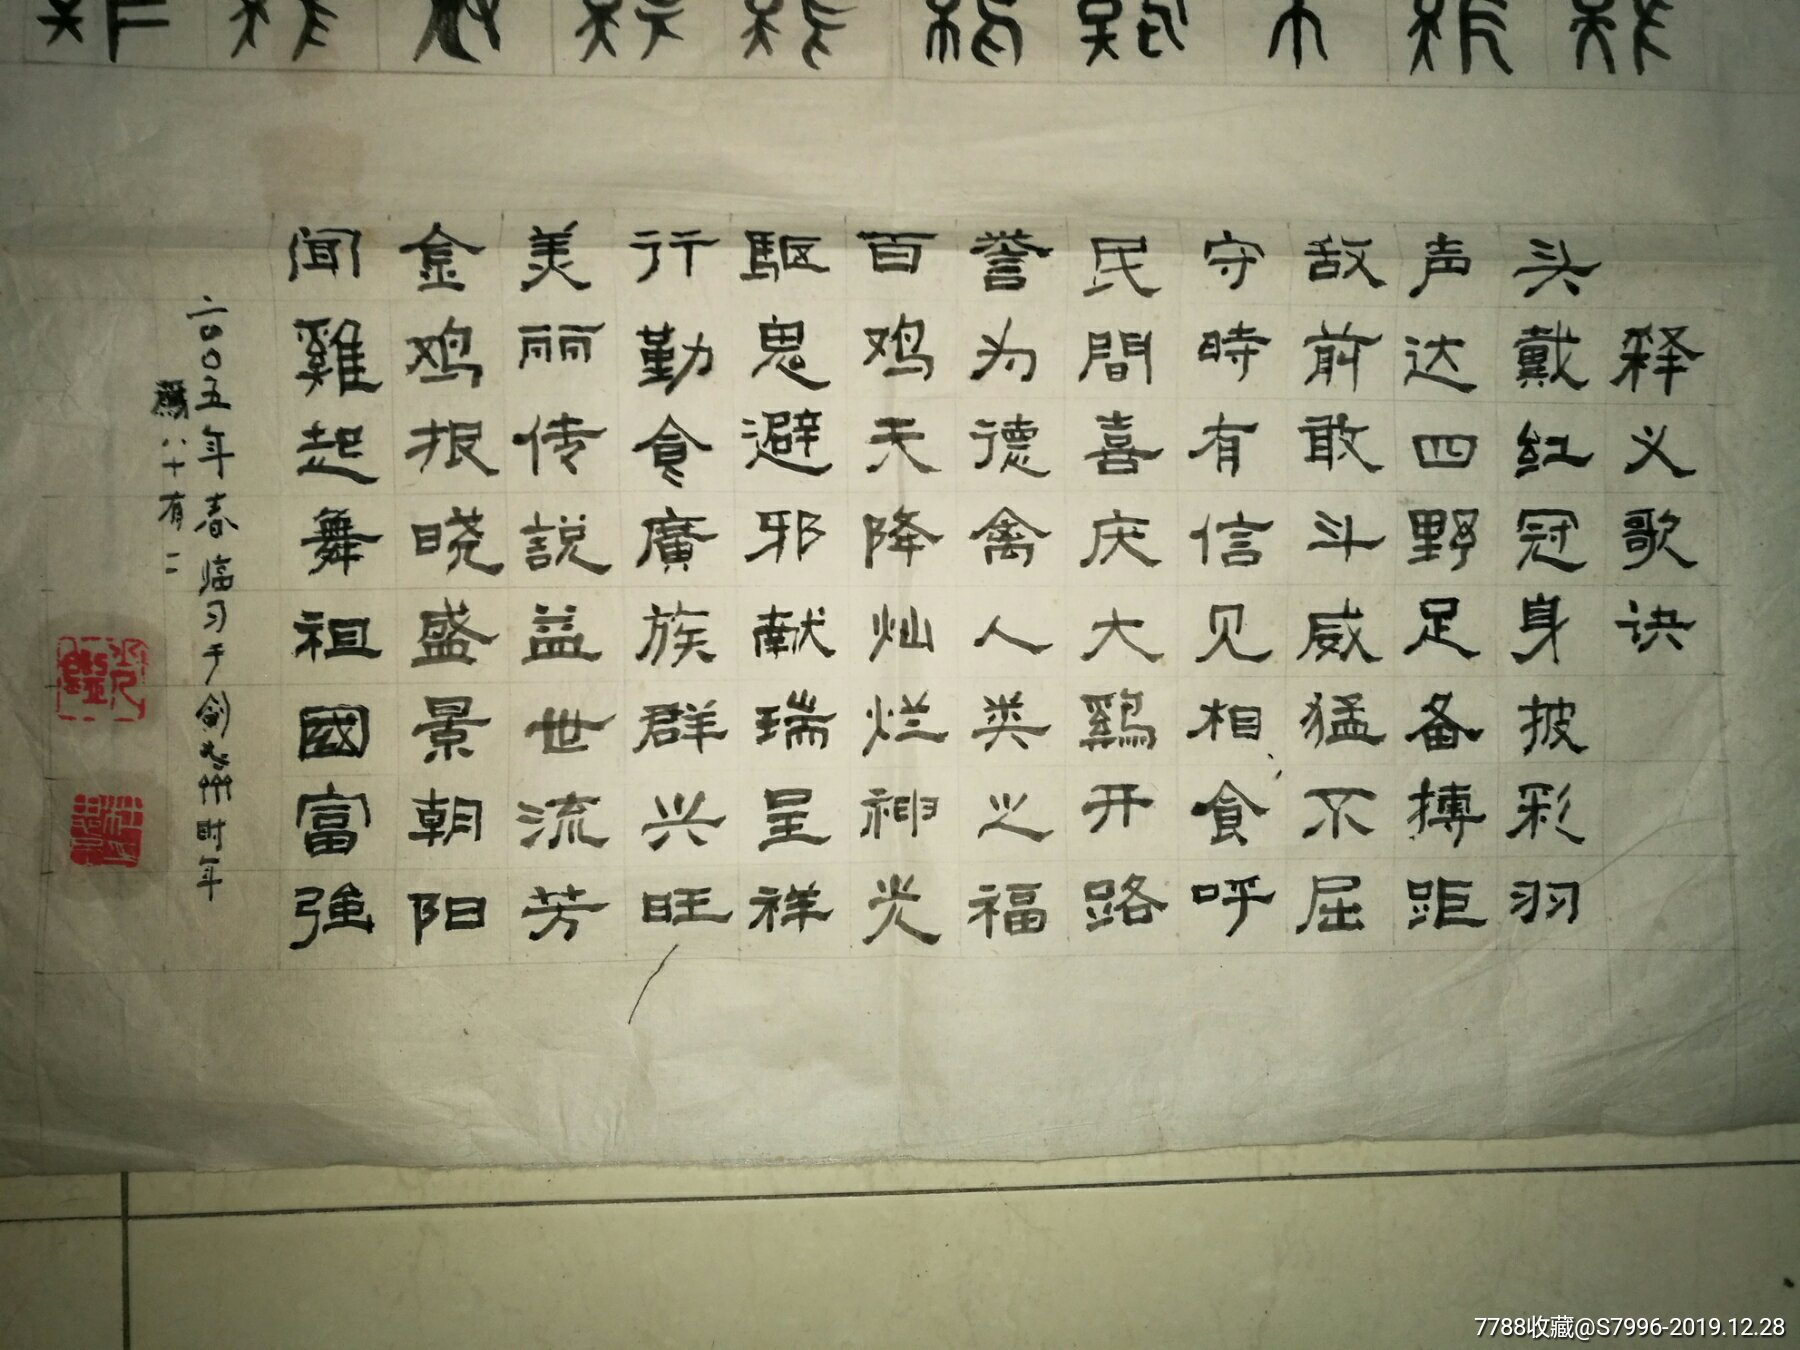 释义歌诀
头戴红冠身披彩羽
声达四野足备搏距
敌前敢斗威猛不屈
守時有信见相食呼
民間喜庆大鷄开路
誉为德禽人类之福
百鸡天降灿烂神光
驱鬼避邪献瑞呈祥
行勤食廣族群兴旺
美丽传説益世流芳
金鸡报晓盛景朝阳
闻雞起舞祖國富強
二00五年春临习于剑州时年
八十有二
7788收藏@S7996-2019.12.28